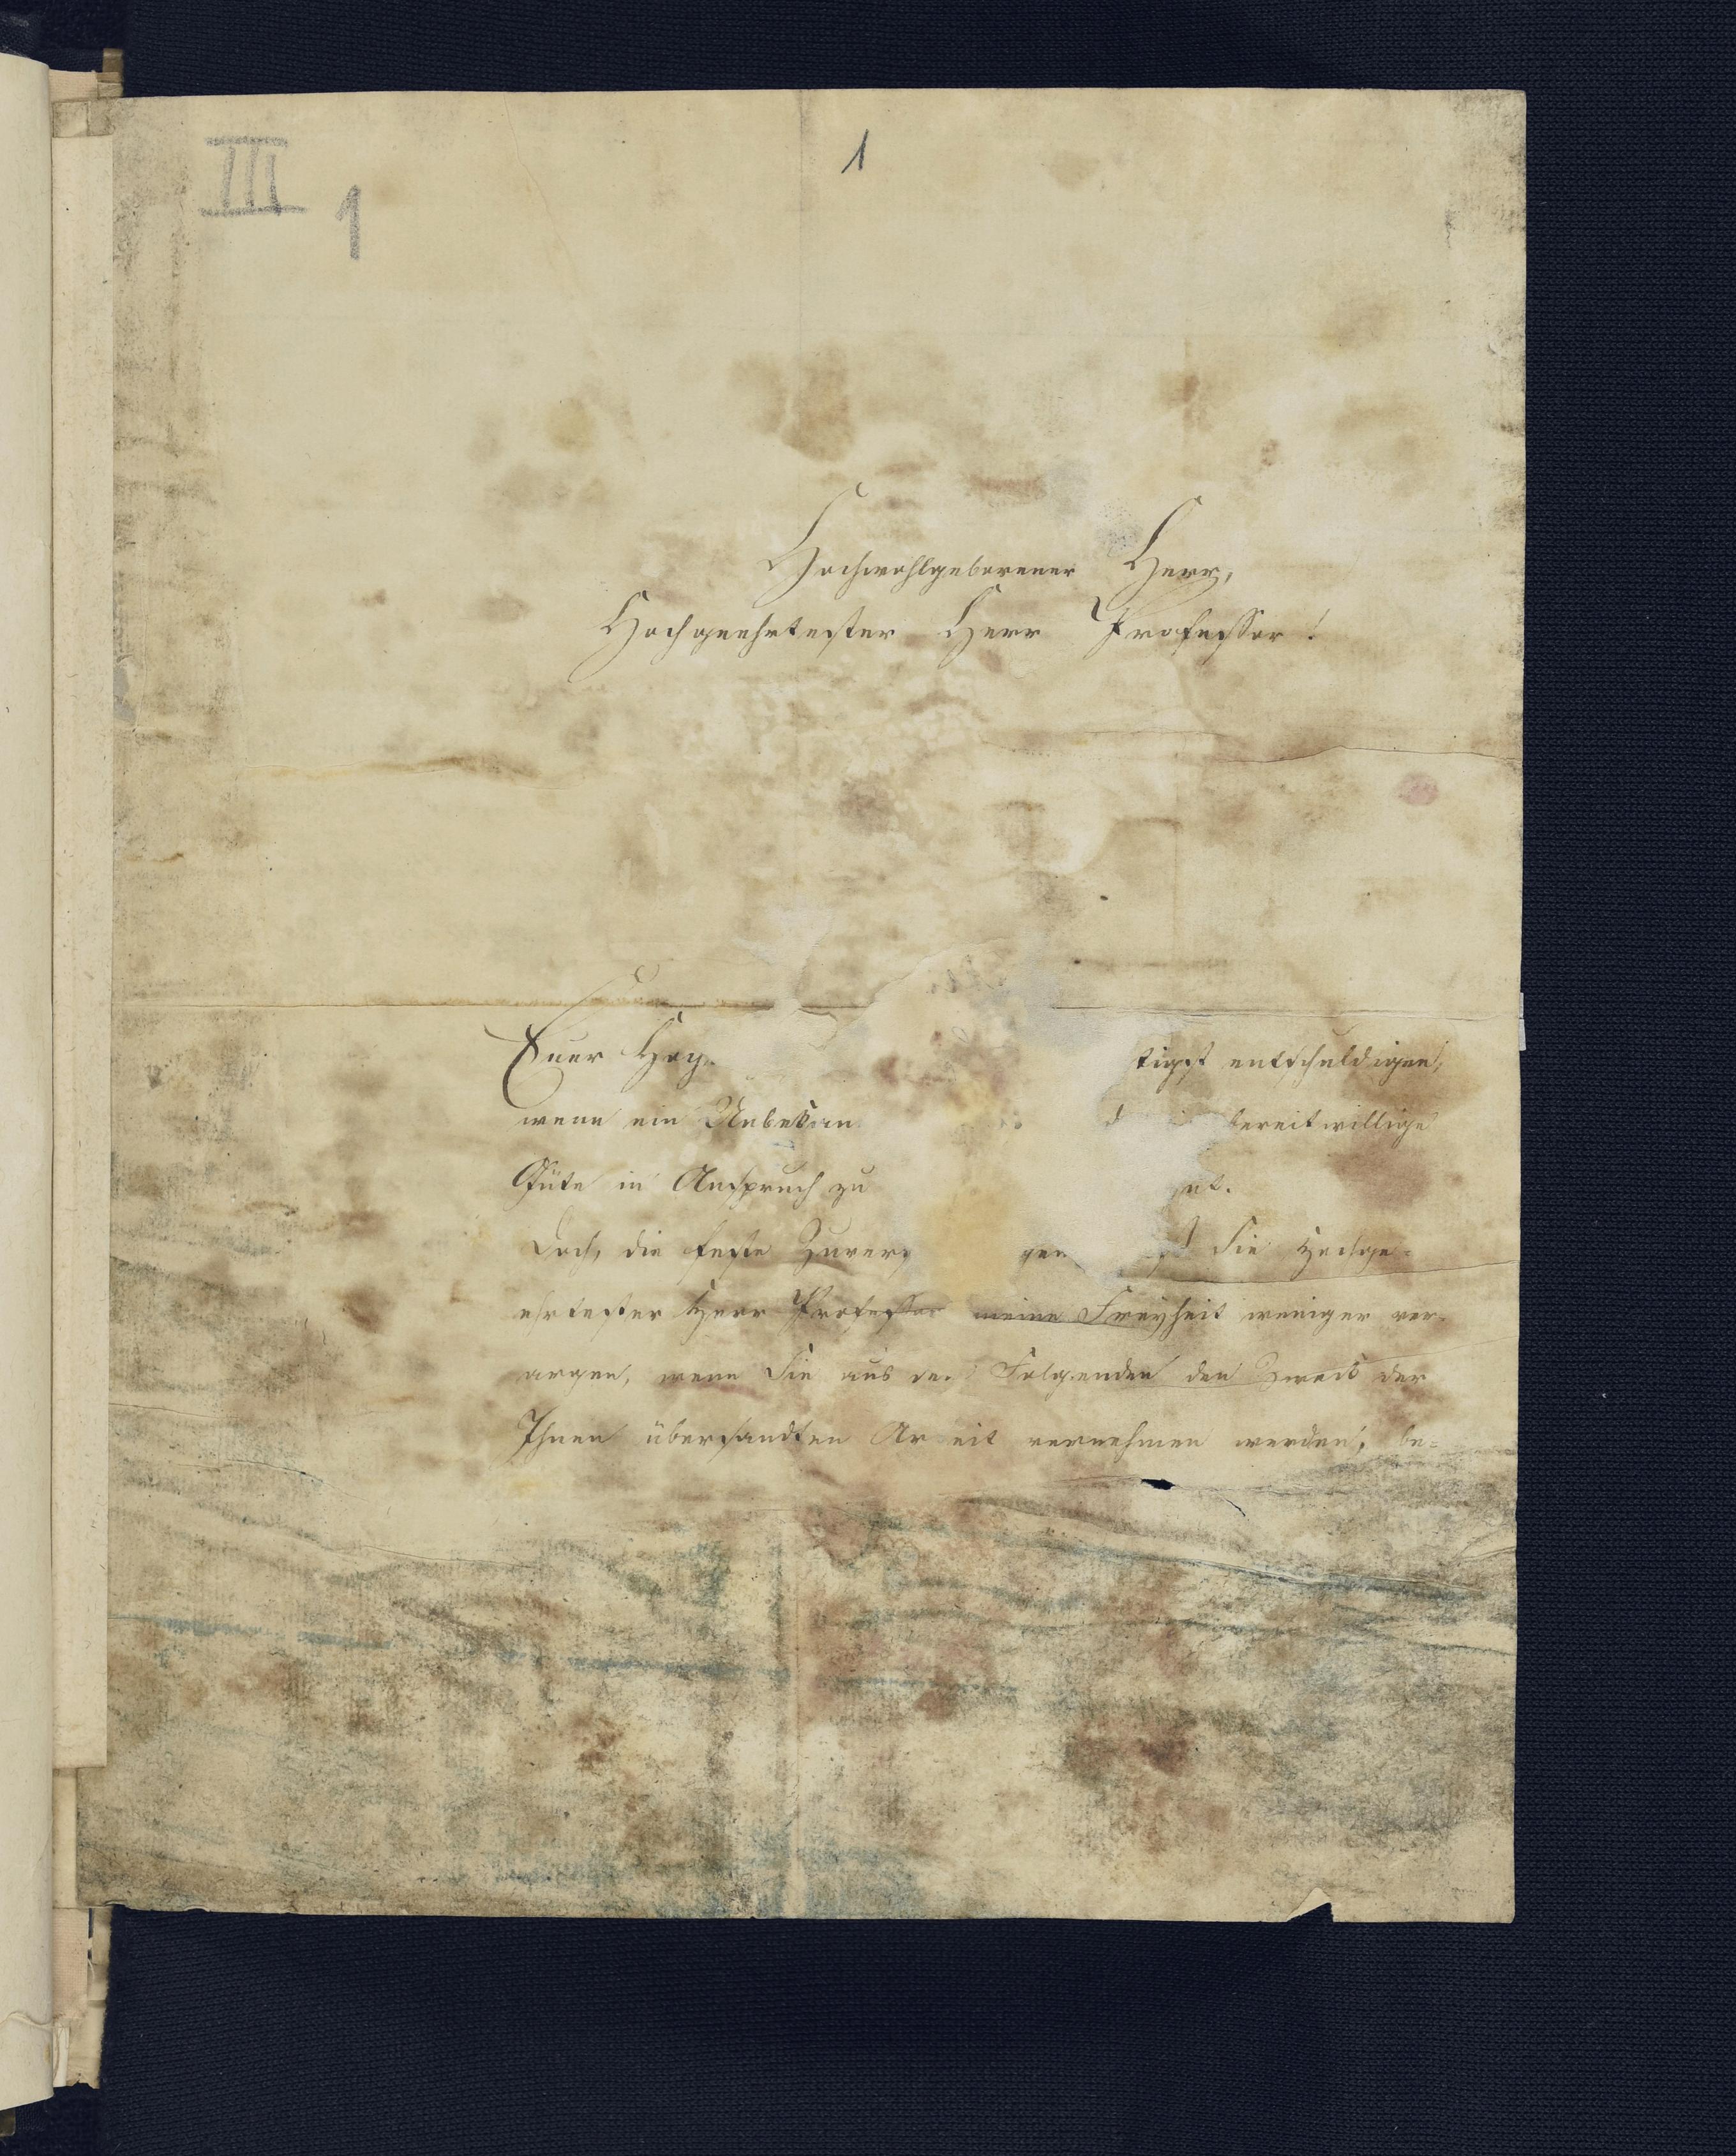 III 1
1
Hochwohlgeborener Herr,
Hochgeehrtester Herr Professor!
Euer
tigst entschuldigen,
wenn ein Unbekan
bereitwillige
Güte in Anspruch zu
Doch, die feste Zuvers
Sie Hochge-
ehrtester Herr Professor meine Freyheit weniger ver-
argen, wenn Sie aus de Folgenden den Zweck der
Ihnen übersandten Ar eit vernehmen werden; be-